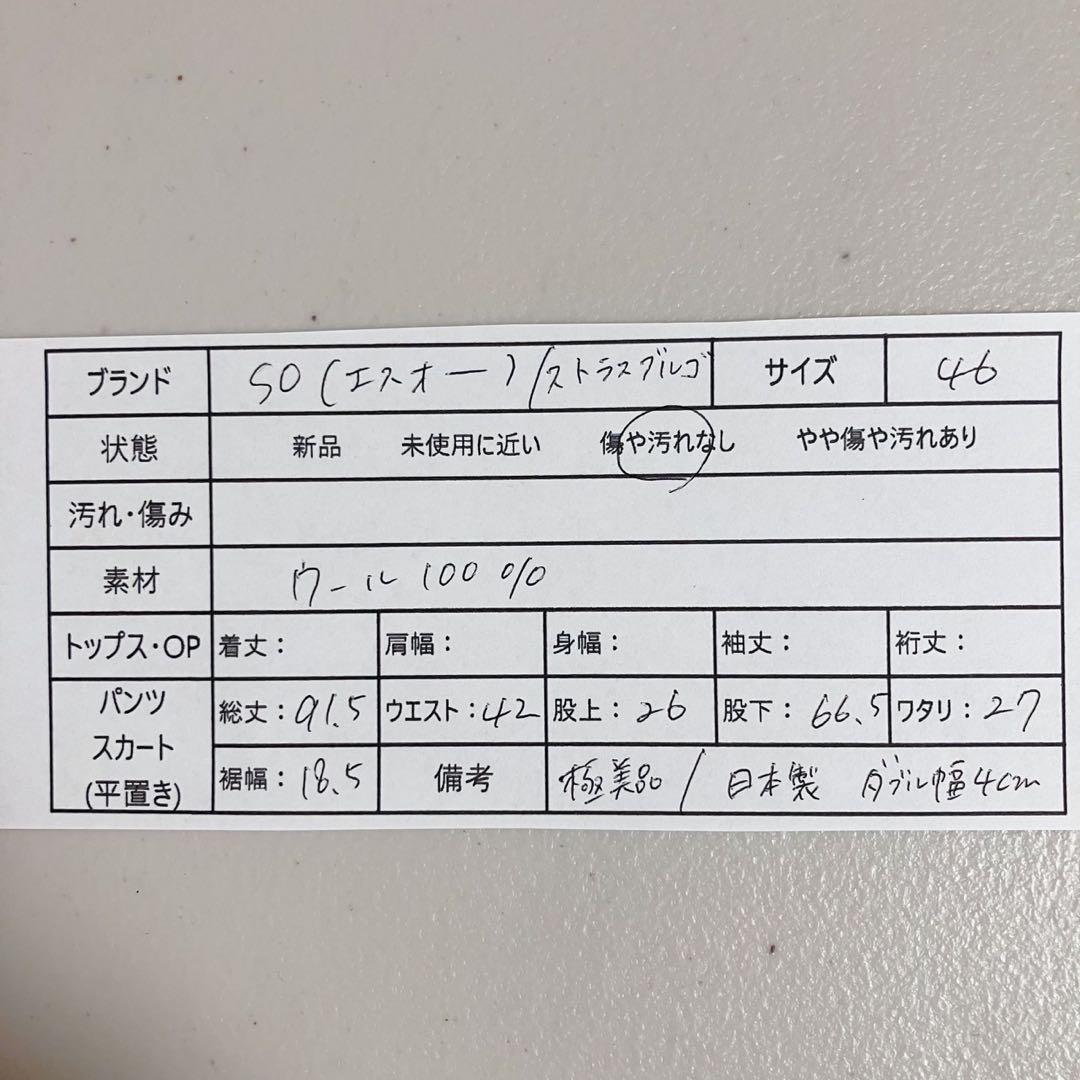 ブランド SO(エスオー)/ストラスブルゴ サイズ 46
状態 新品 未使用に近い 傷や汚れなし やや傷や汚れあり
汚れ・傷み
素材 ウール 100%
トップス・OP 着丈: 肩幅: 身幅: 袖丈: 裄丈:
パンツ
スカート
(平置き)
総丈:91.5 ウエスト:42 股上:26 股下:66.5 ワタリ:27
裾幅:18.5 備考 極美品/日本製 ダブル幅4cm